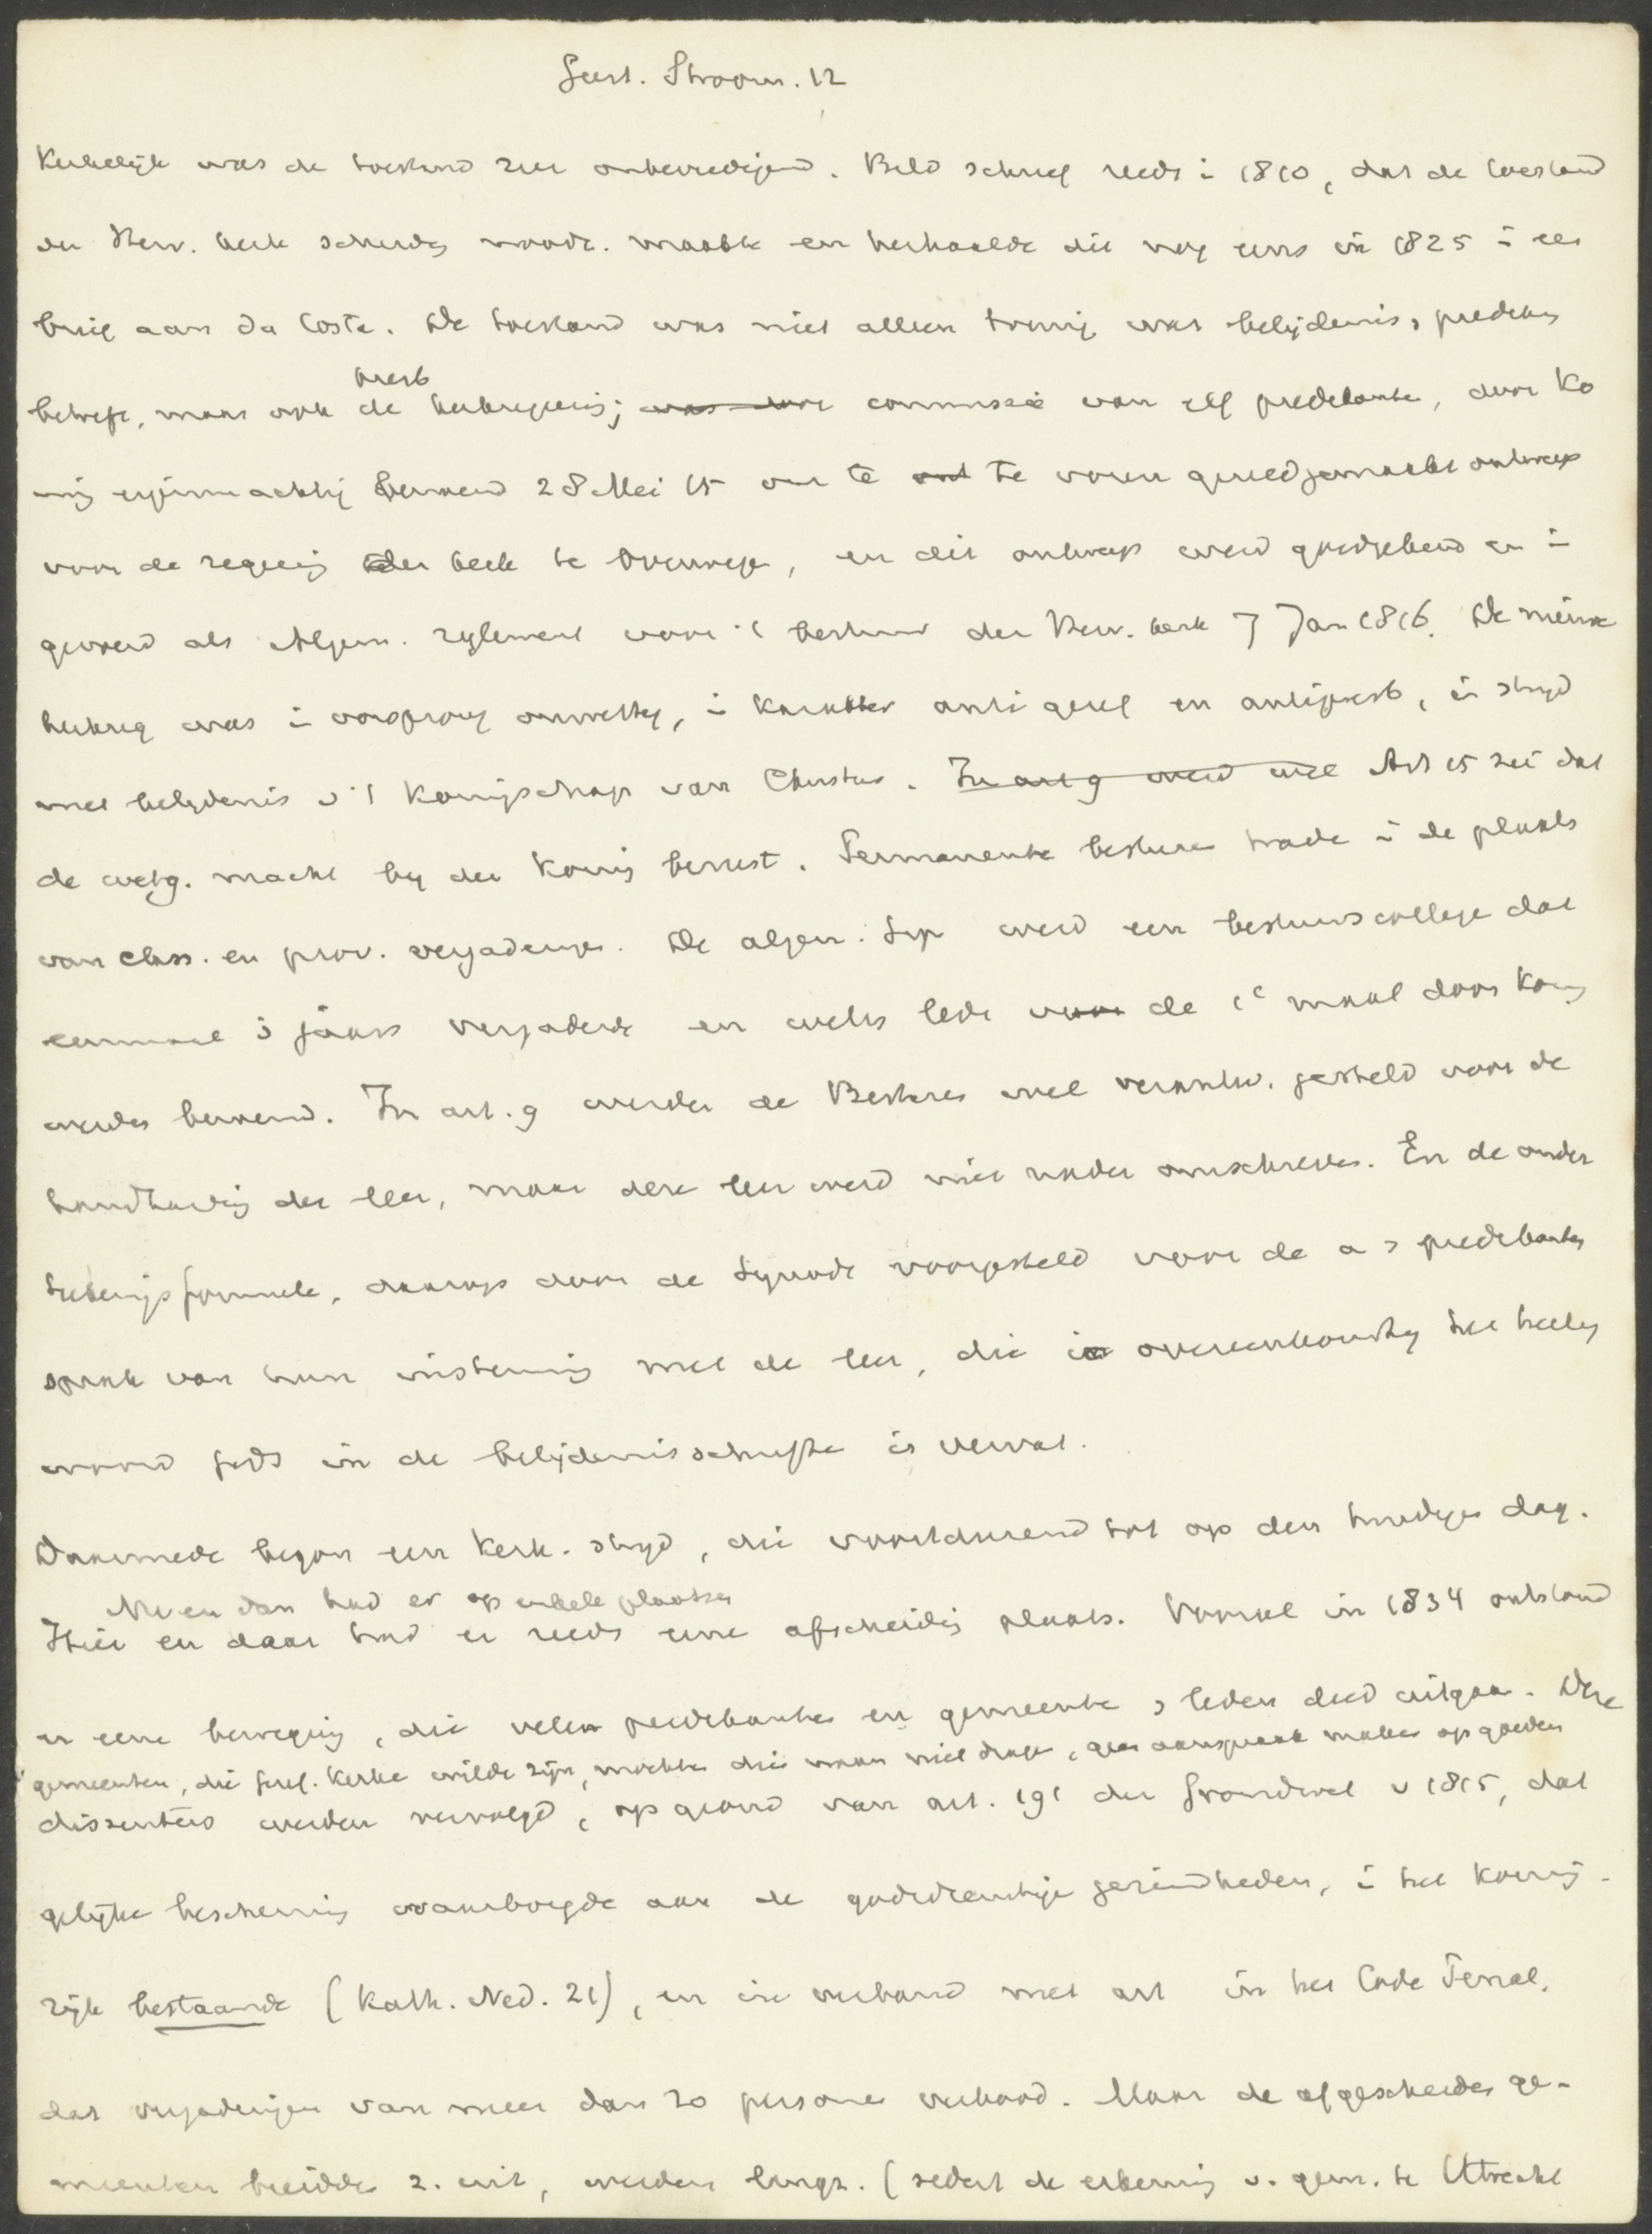 Geest. Stroom. 12
Kerkelijk was de toestand zeer onbevredigend. Bild schreef reeds i 1810, dat de toestand
der Herv. kerk scheuring noodz. maakte en herhaalde dit nog eens in 1825 i een
brief aan da Costa. De toestand was niet alleen treurig wat belijdenis, prediking
betreft, maar ook de kerkregering; was door commissie van elf predikante, door Ko
presb
nig eigenmachtig benoemd 28 Mei 15 om te te voren gereedgemaakt ontwerp
voor de regeeing der kerk te overwege, en dit ontwerp werd goedgekeurd en i
gevoerd als Algem. reglement voor 't bestuur der Herv. kerk 7 Jan 1816. De nieuwe
kerkreg was i oorsprong onwettig, i karakter antigeref en antipresb, in strijd
met belijdenis v 't koningschap van Christus. In art 9 werd wel Art 15 zei dat
de wetg. macht bij den Koning berust. Permanente besture trade i de plaats
van class. en prov. vergaderinge. De algem. Syn werd een bestuurscollege dat
eenmaal s jaars vergaderde en welks lede voor de 1e maal door Koning
werden benoemd. In art. 9 werden de Besturen wel verantw. gesteld voor de
handhaving der leer, maar deze leer werd niet nader omschreven. En de onder
tekenings formule, daarop door de Synode voorgesteld voor de a s predikanten
sprak van hun instemming met de leer, die in overeenkomstig het heilig
woord Gods in de belijdenisschrifte is vervat.
Daarmede begon een kerk. strijd, die voortdurend tot op den huidigen dag.
Nu en dan had er op enkele plaatsen
Hier en daar had er reeds eene afscheiding plaats. Vooral in 1834 ontstond
er eene beweging, die velen predikanten en gemeente s leden deed uitgaan. Deze
gemeenten, die Geref. Kerke wilde zijn, mochten die naam niet drage, geen aanspraak maken op goeden
dissenters werden vervolgd, op grond van art. 191 der Grondwet v 1815, dat
gelijke bescherming waarborgde aan de godsdienstige gezindheden, i het Konink-
rijk bestaande (Kath. Ned. 21), en in verband met art in het Code Penal.
dat vergaderingen van meer dan 20 personen verbood. Maar de afgescheiden ge-
meenten breidden z. uit, werden langz. (sedert de erkenning v. gem. te Utrecht